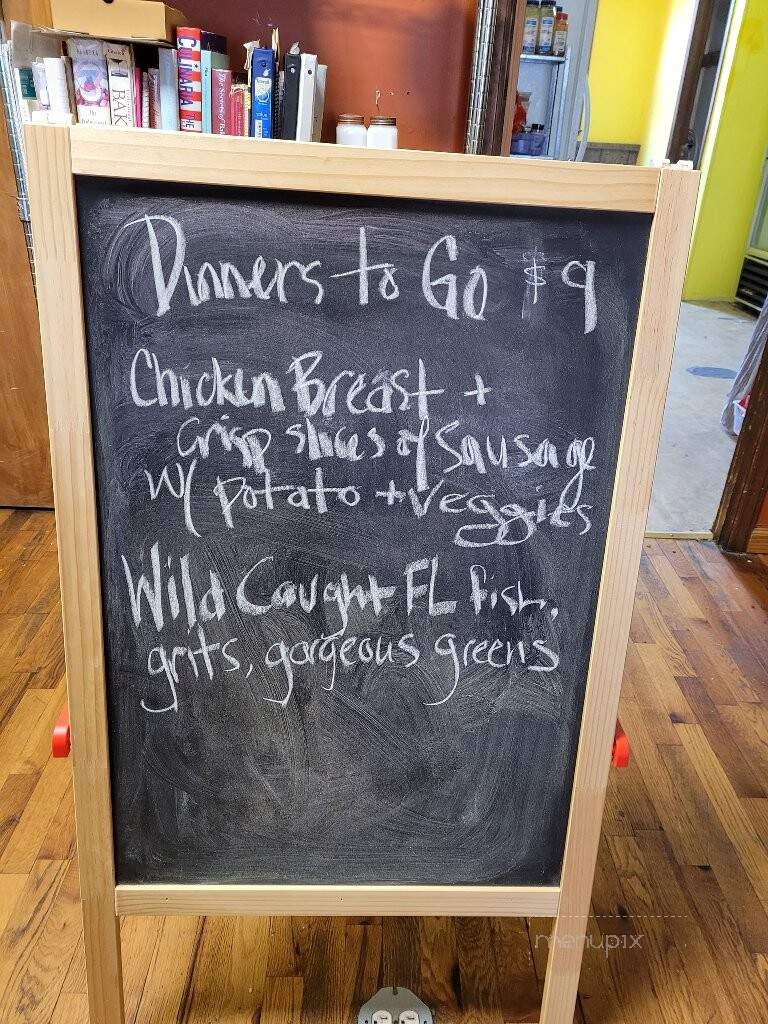 CULINARIA
THE
BAK
Dinners to Go $9
Chicken Breast +
Crisp slices of Sausage
w/ potato + veggies
Wild Caught FL fish,
grits, gorgeous greens
menupix